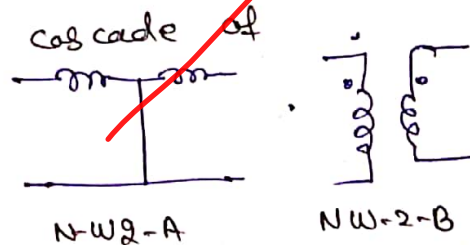 cascade of
N-W2-A
NW-2-B